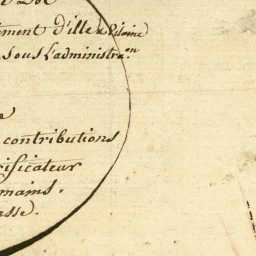 tement d'ille & Vilaine
sous L'administra.on
contributions
rificateur
mains.
asse.